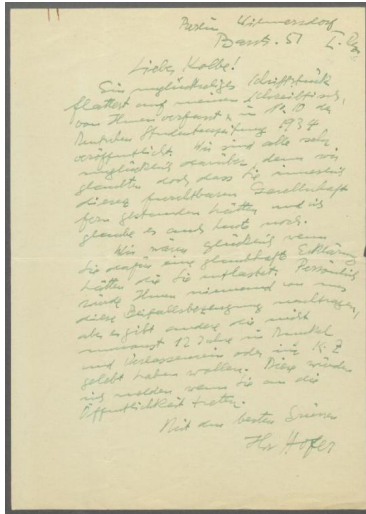 Berlin Wilmersdorf
Barstr. 51
Lieber Kolbe!
Ein unglückseliges Schriftstück
flattert auf meinen Schreibtisch,
von Ihnen verfasst in № 10 der
Deutschen Studentenzeitung 1934
veröffentlicht. Wir sind alle sehr
unglücklich darüber, denn wir
glaubten doch dass Sie innerlich
dieser furchtbaren Gesellschaft
fern gestanden hätten und ich
glaube es auch heute noch.
Wir wären glücklich wenn
Sie dafür eine glaubhafte Erklärung
hätten die Sie entlastet. Persönlich
würde Ihnen niemand von uns
diese Beifallsbezeugung nachtragen,
aber es gibt andere die nicht
umsonst 12 Jahre in Dunkel
und Verlassensein oder im K.Z
gelebt haben wollen. Diese würden
sich melden wenn Sie an die
Öffentlichkeit treten.
Mit den besten Grüssen
Ihr Hofer